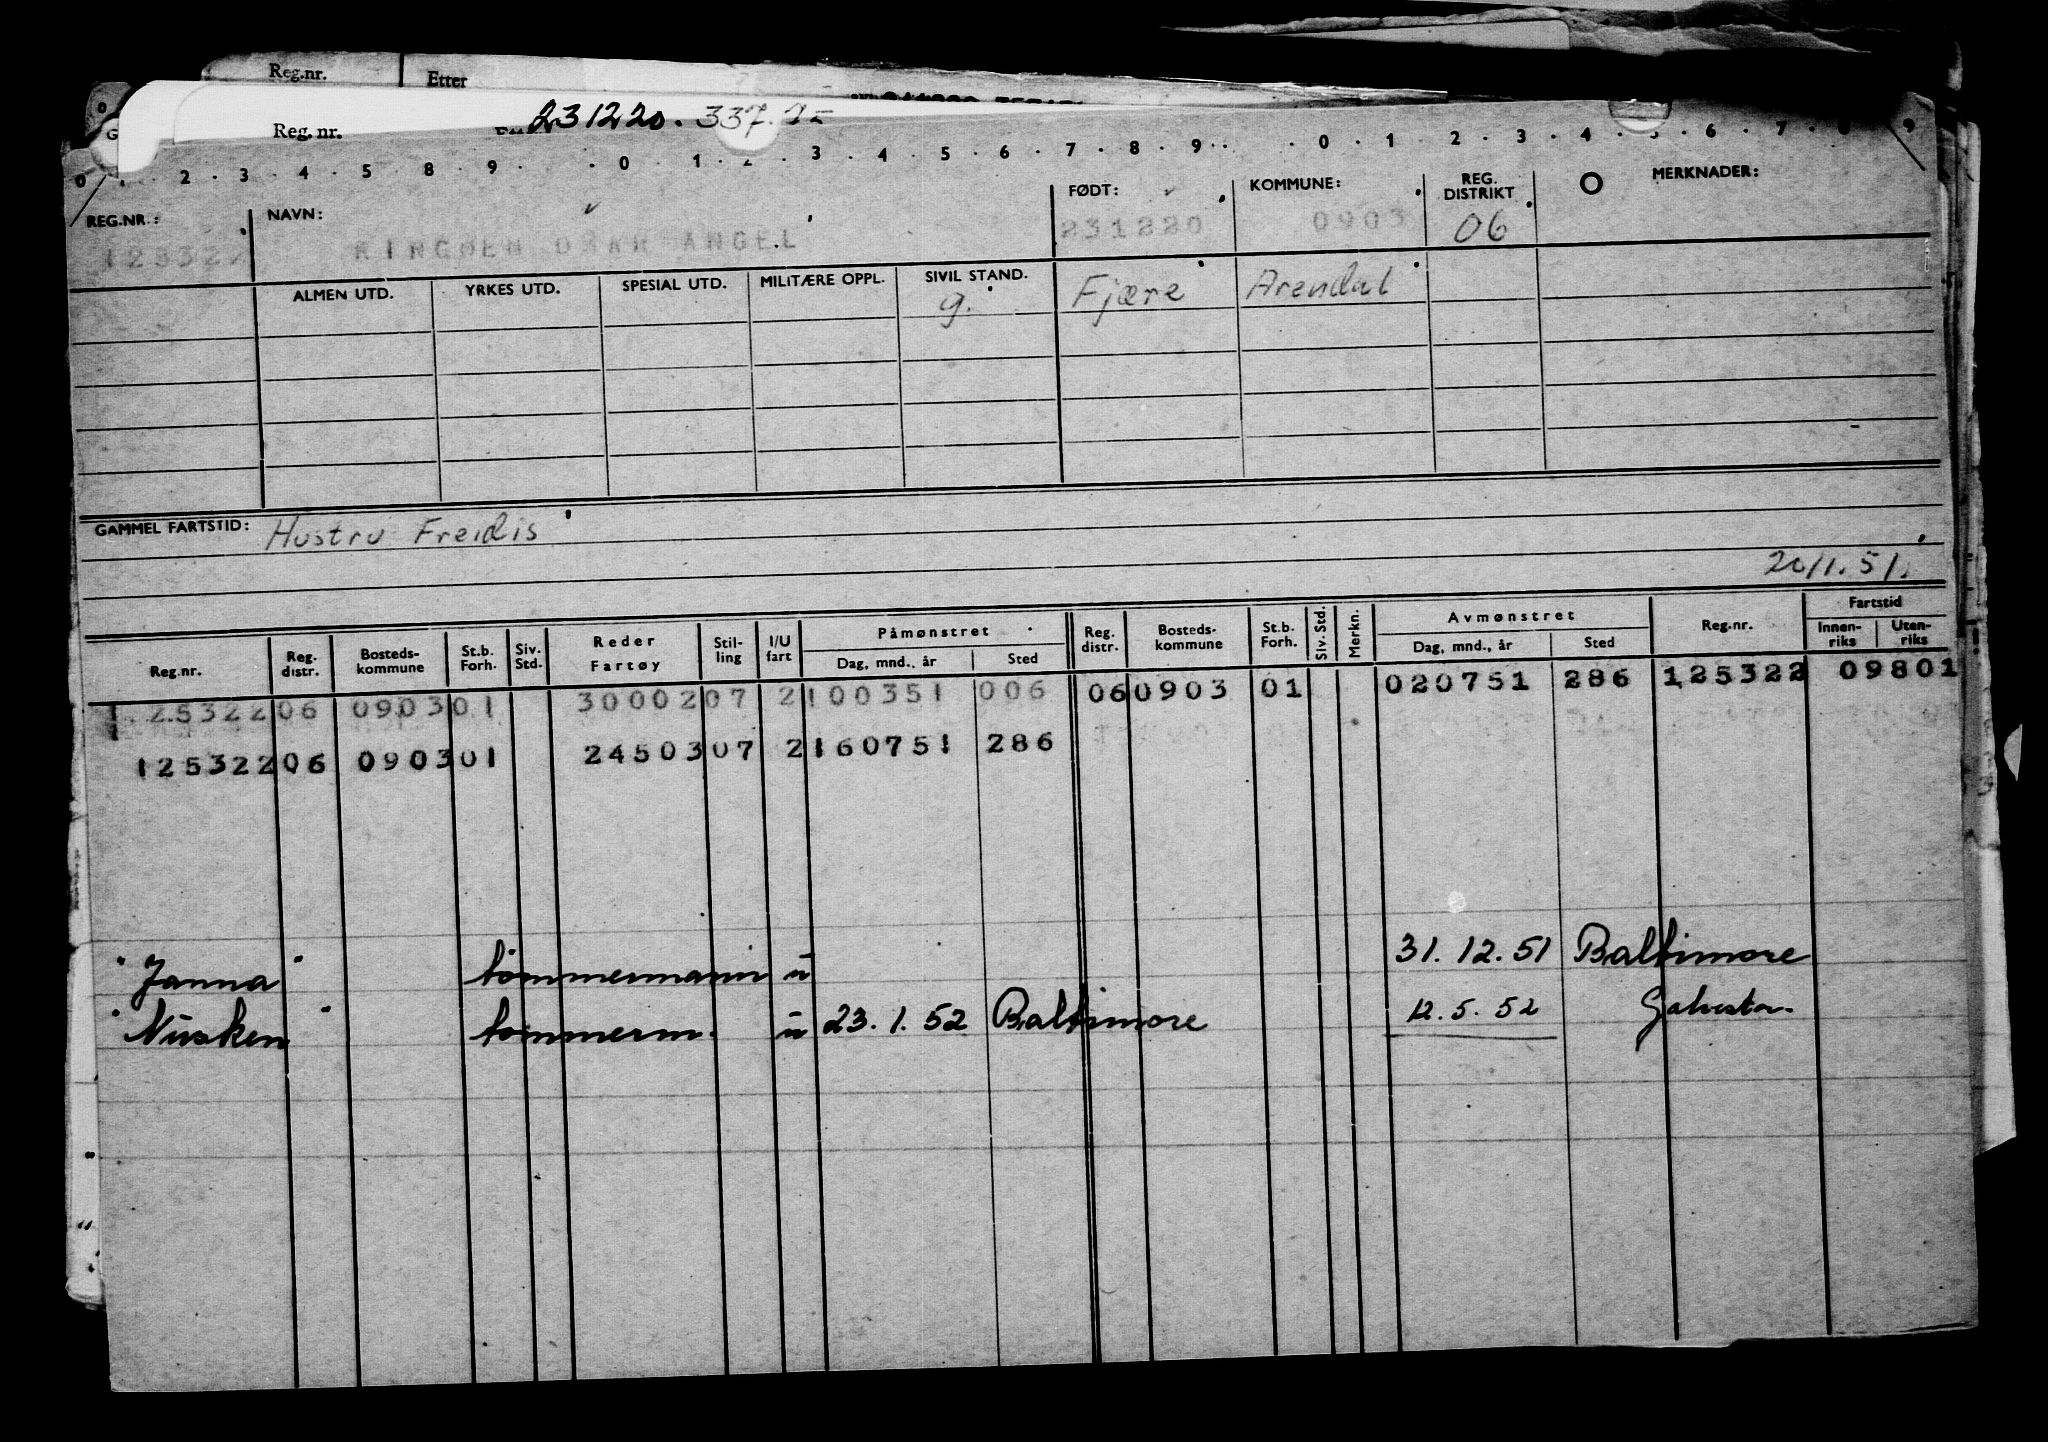 Reg.nr. Etter
Reg. nr. 231220. 337.
0 1 2 3 4 5 8 9 0 1 2 3 4 5 6 7 8 9 0 1 2 3 4 5 6 7 8 9
REG.NR.: NAVN: FØDT: KOMMUNE: REG. DISTRIKT MERKNADER:
ANGEL 231220 0903 06
ALMEN UTD. YRKES UTD. SPESIAL UTD. MILITÆRE OPPL. SIVIL STAND. Fjære Arendal
g.
GAMMEL FARTSTID: Hustru Freidis
20/1.51.
Reg.nr. Reg. distr. Bosteds-kommune St.b. Forh. Siv. Std. Reder Fartøy Stil-ling I/U fart Påmønstret Dag, mnd., år Sted Reg. distr. Bosteds-kommune St.b. Forh. Siv. Std. Merkn. Avmønstret Dag, mnd., år Sted Reg.nr. Fartstid Innen-riks Uten-riks
125322 06 0903 01 30002 07 2 100351 006 06 0903 01 020751 286 125322 09801
125322 06 0903 01 24503 07 2 160751 286
"Janna" tømmermann u 31.12.51 Baltimore
"Nusken" tømmerm. u 23.1.52 Baltimore 12.5.52 Galveston